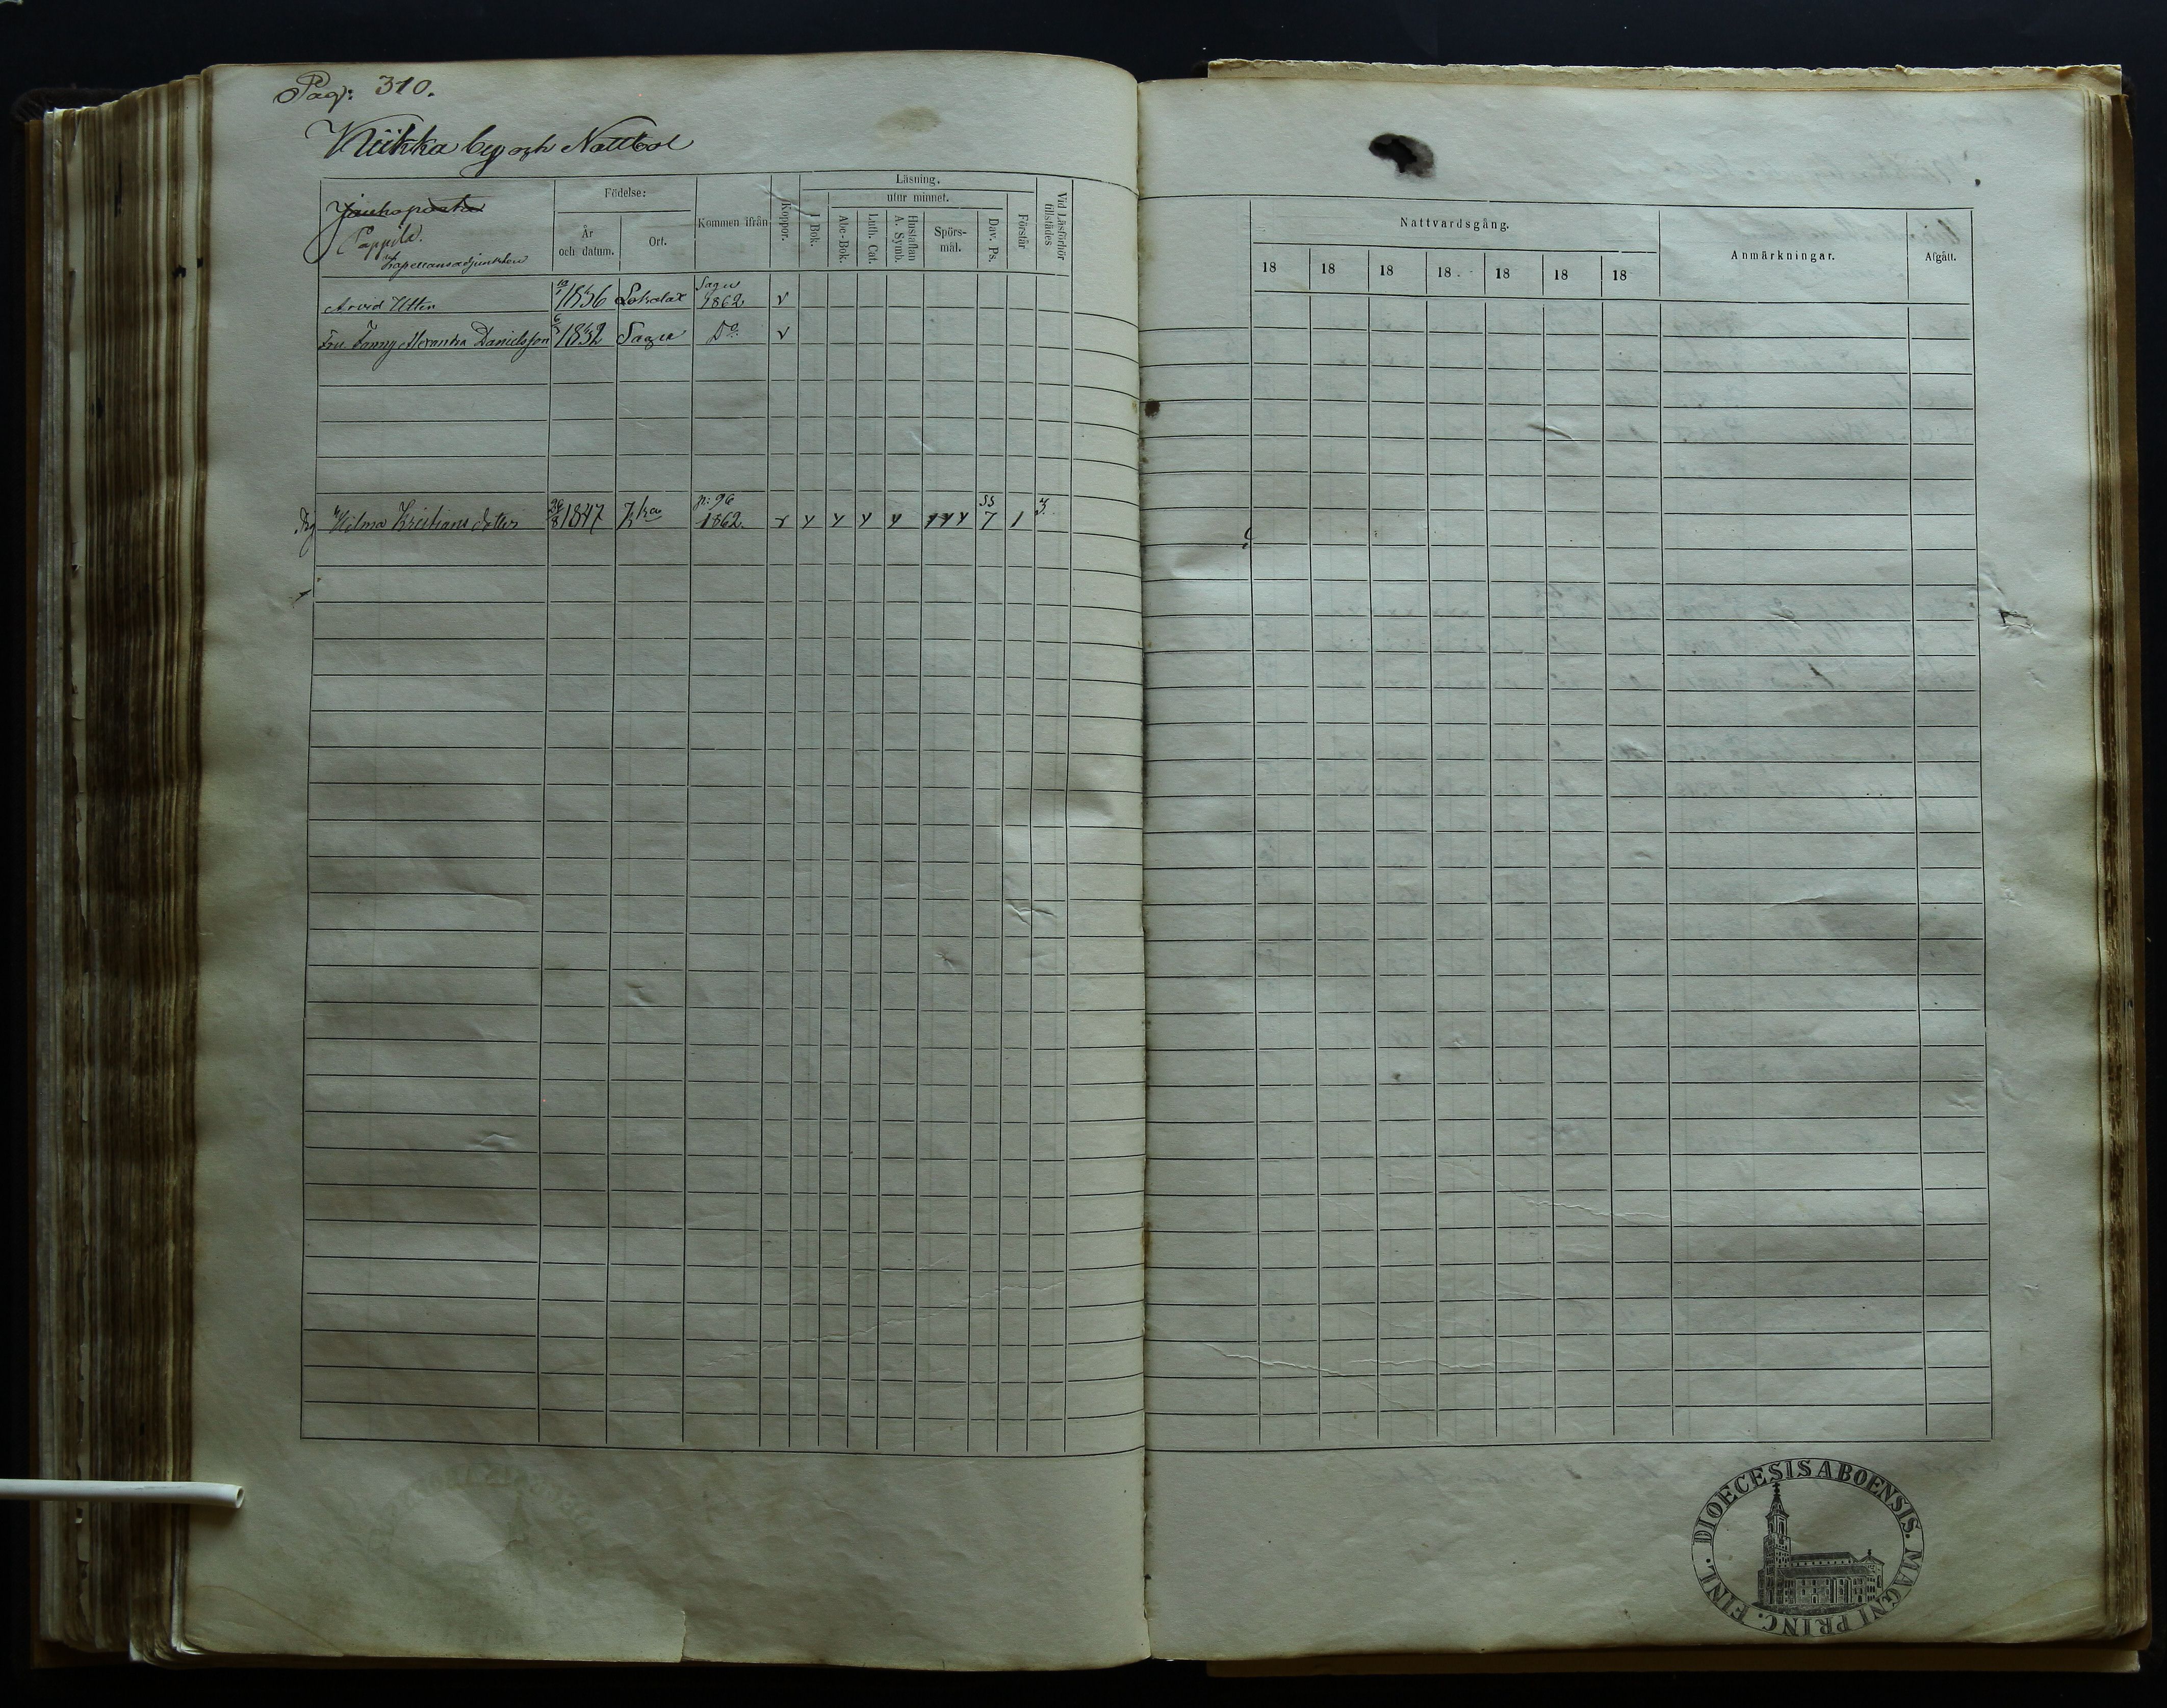 Pag: 310.
Kiikka by och Nattbol
Pappila.
Kapellansadjunkten
Födelse:
År
och datum.
Ort.
Kommen ifrån
Koppor.
Läsning.
I Bok.
utur minnet.
Abc-Bok.
Luth. Cat.
Hustaflan
A. Symb.
Spörs-
mål.
Dav. Ps.
Förstår
Vid Läsförhör
tillstädes
Arvid Utter 1836 Lokalax Sagu 1862
Fru Fanny Alexandra Danielsson 6/5 1832 Sagu Do
Hilma Kristians dotter 1847 Kka p: 96 1862.
Nattvardsgång.
18 18 18 18 18 18 18
Anmärkningar.
Afgått.
DIOECESIS ABOENSIS. MAGNI PRINC. FINL.